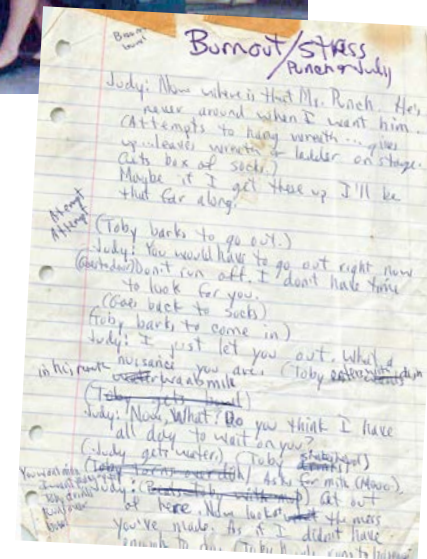 Burnout/stress
Punch & Judy
Judy: Now where is that Mr. Punch. He's
never around when I want him.
(Attempts to hang wreath... gives
up... leaves wreath & ladder on stage.
Gets box of socks.)
Maybe if I get these up I'll be
that far along.
Attempt
Attempt
(Toby barks to go out.)
Judy: You would have to go out right now
(Goes to door) Don't run off. I don't have time
to look for you.
(Goes back to socks)
(Toby barks to come in)
Judy: I just let you out. What a
nuisance you are. (Toby enters with dish
in his mouth wants milk
(Toby gets bowl)
Judy: Now, What? Do you think I have
all day to wait on you?
(Judy gets water) (Toby
(Toby turns over dish/ Asks for milk (Mooo).
Judy: Get out
of here. Now look at the mess
you've made. As if I didn't have
enough to do.